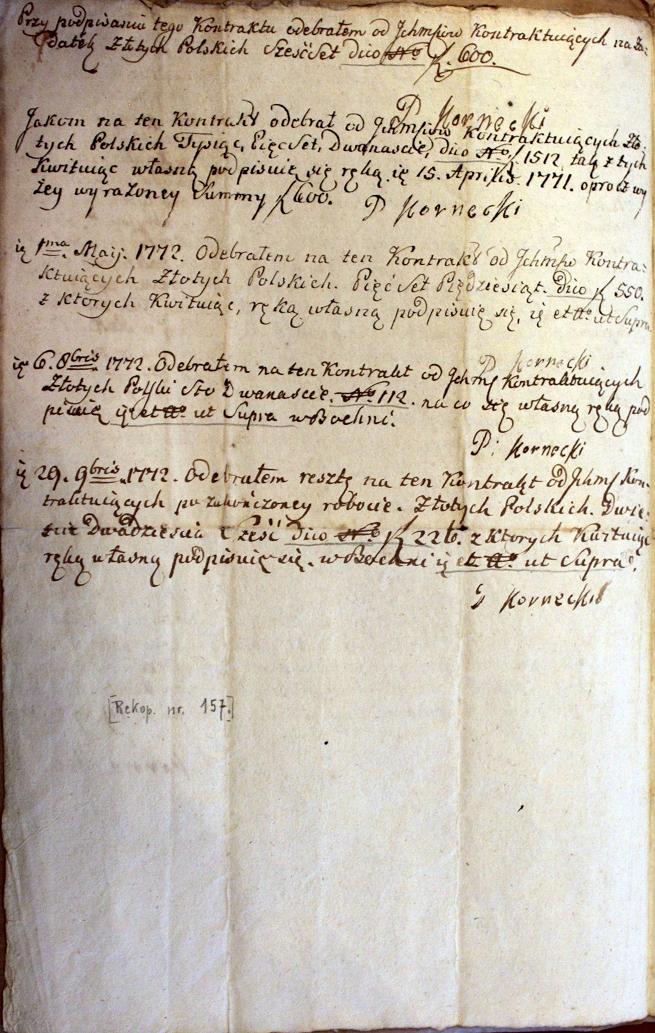 Przy podpisaniu tego Kontraktu odebrałem od Jchmściow Kontraktuiących na Za:
datek Złotych Polskich Sześćset dico No f. 600.
P Kornecki
Jakom na ten Kontrakt odebrał od Jchmściow Kontraktuiących Zło:
tych Polskich Tysiąc, Pięc Set, Dwanascie, dico No f 1512 tak z tych
Kwituiąc własną podpisuię się ręką. ię 15. Aprilis. 1771. oprocz wy
zey wyrażoney Summy f 600.
P Kornecki
ię 1ma. Maij. 1772. Odebrałem na ten Kontrakt od Jchmśc Kontra:
ktuiących Złotych Polskich. Pięć Set Piędziesiąt. Dico f 550.
z ktorych Kwituiąc, ręką własną podpisuię się, ię et ao ut Supra
P Kornecki
ię 6. 8bris 1772. Odebrałem na ten Kontrakt od Jchmś Kontraktuiących
Złotych Polski Sto Dwanascie. No 112. na co się własną ręką pod
pisuię ię et ao ut Supra w Bochni.
P: Kornecki
ię 29. 9bris 1772. Odebrałem resztę na ten Kontrakt od Jchmś Kon:
traktuiących po zakończoney robocie. Złotych Polskich. Dwie:
scie Dwadziescia i Sześć dico No f 226. z ktorych Kwituiąc
ręką własną podpisuię się. w Bochni ię et ao ut Supra.
P Kornecki
[Rękop. nr. 157.]